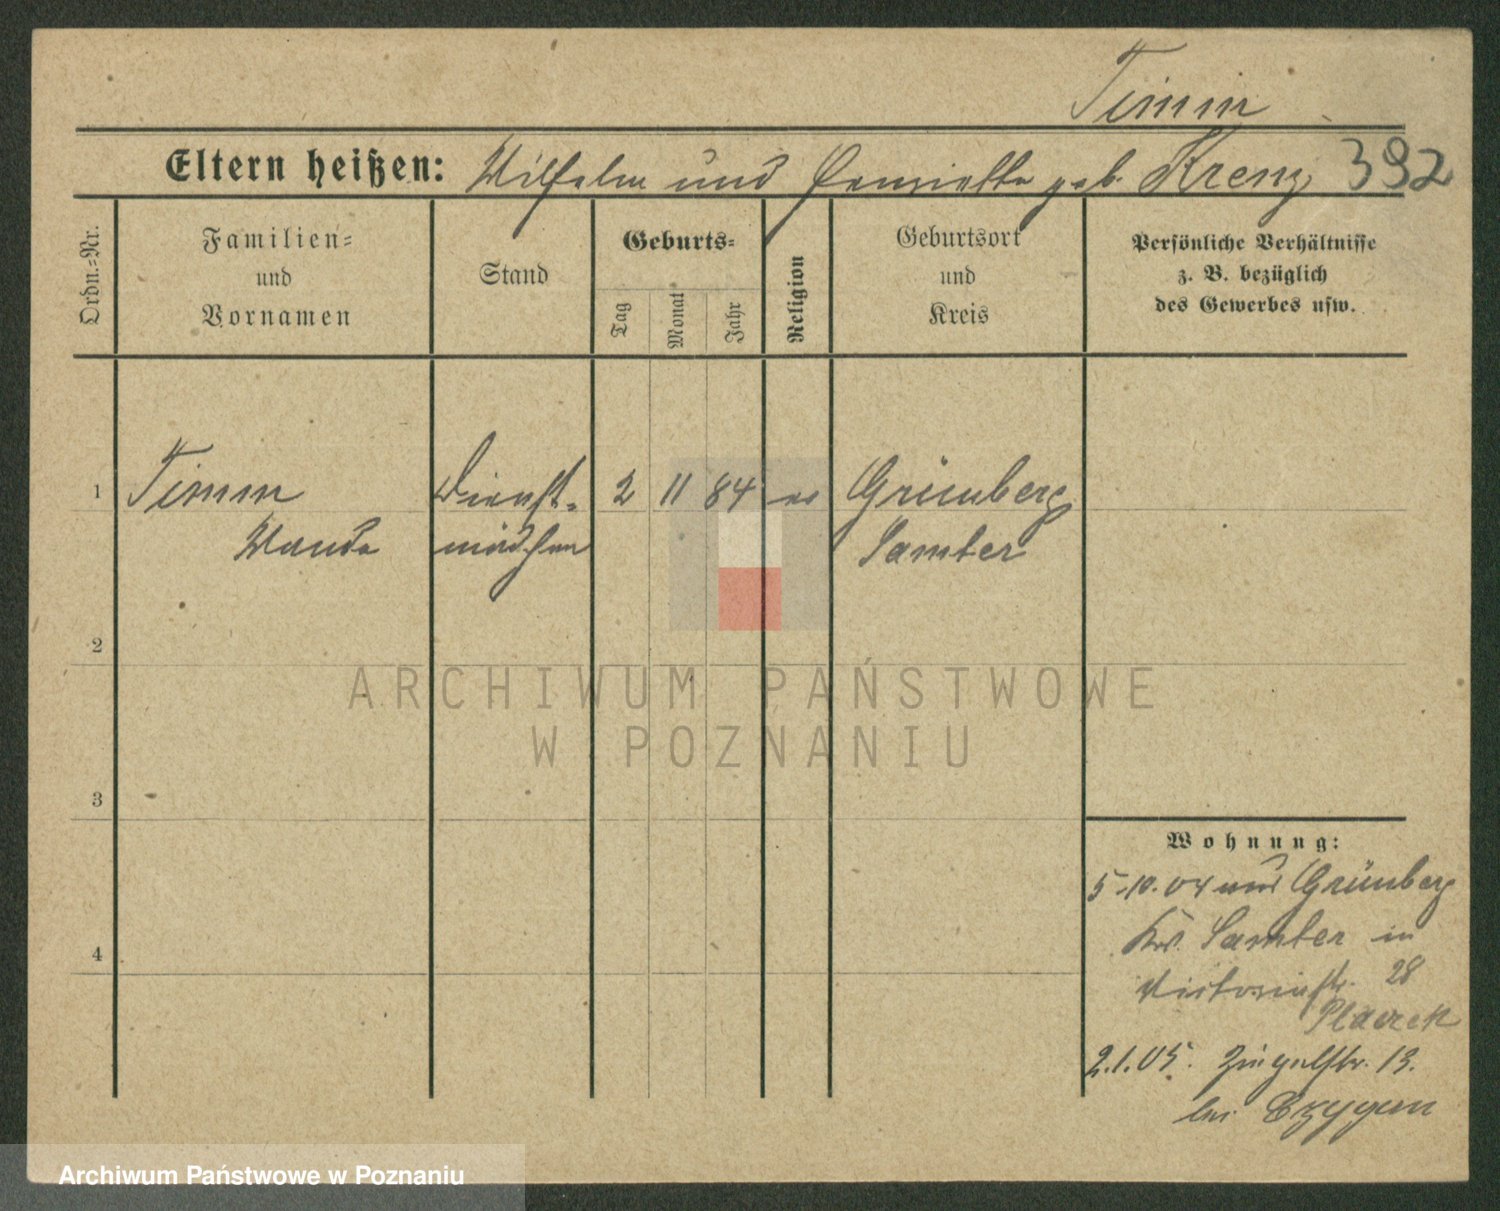 Timm
Eltern heißen: Wilhelm und Henriette geb. Krenz 392
Ordn.=Nr.
Familien=
und
Vornamen
Stand
Geburts=
Tag
Monat
Jahr
Religion
Geburtsort
und
Kreis
Persönliche Verhältnisse
z. B. bezüglich
des Gewerbes usw.
1 Timm Dienst- 2 11 84 ev Grünberg
Wanda mädchen Samter
2
3
4
Wohnung:
5.10.04 aus Grünberg
Krs. Samter in
Victoriastr. 28
2.1.05. Ziegelstr. 13.
bei
ARCHIWUM PAŃSTWOWE
W POZNANIU
Archiwum Państwowe w Poznaniu